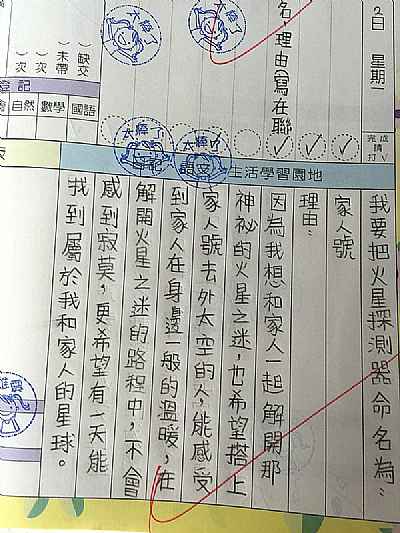 2日 星期一
名,理由寫在聯
太棒了
太棒了
缺交
未帶
次
次
登記
國語
數學
自然
完成請打V
太棒了
太棒了
生活學習園地
我要把火星探測器命名為:
家人號
理由:
因為我想和家人一起解開那
神祕的火星之迷,也希望搭上
家人號去外太空的人,能感受
到家人在身邊一般的溫暖,在
解開火星之迷的路程中,不會
感到寂莫,更希望有一天能
找到屬於我和家人的星球。